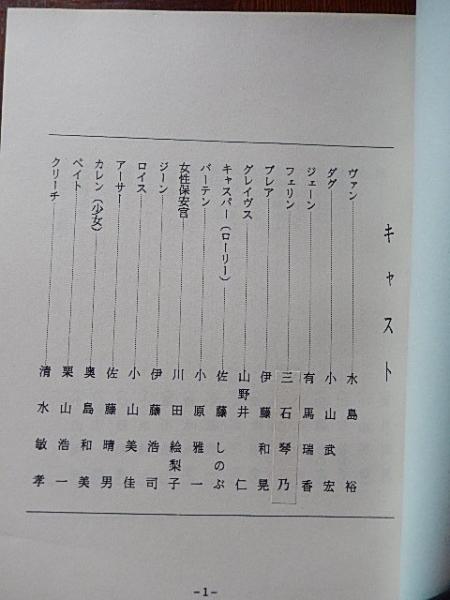 キャスト
ヴァン……水島 裕
ダグ……小山武宏
ジェーン……有馬瑞香
フェリン……三石琴乃
ブレア……伊藤和晃
グレイヴス……山野井 仁
キャスパー（ローリー）……佐藤しのぶ
バーテン……小原雅一
女性保安官……川田絵梨子
ジーン……伊藤浩司
ロイス……小山美佳
アーサー……佐藤晴男
カレン（少女）……奥島和美
ベイト……栗山浩一
クリーチ……清水敏孝
-1-